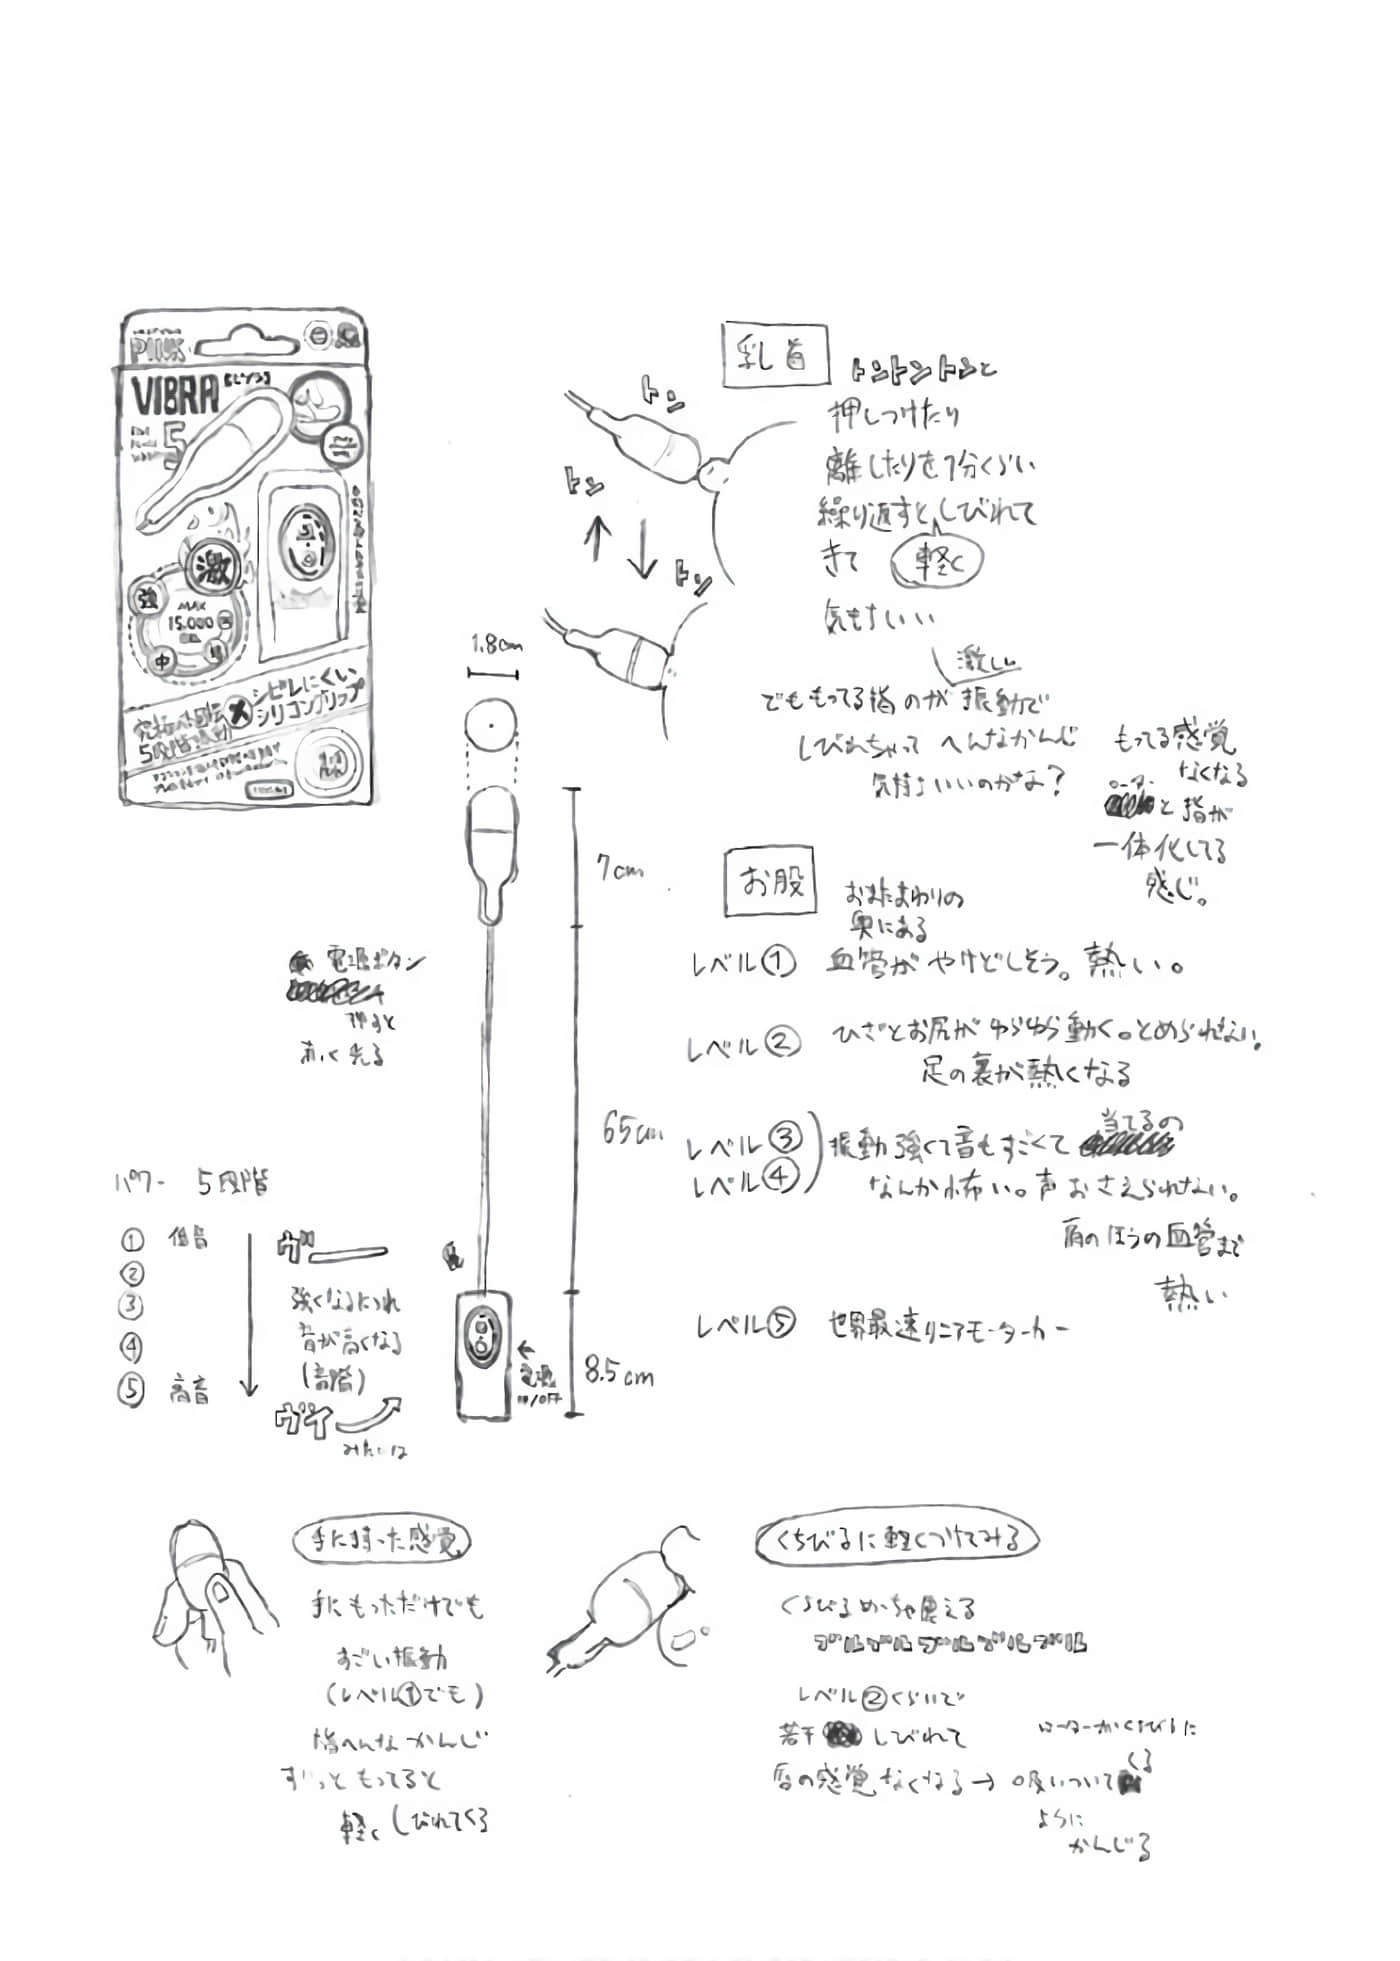 PINK
VIBRA
5
激
強
MAX
15.000
中
弱
シビレにくい
シリコングリップ
5段階振動
乳首
トントントンと
押しつけたり
離したりを1分くらい
繰り返すとしびれて
きて
軽く
気もちいい
トン
トン
トン
激しい
でももってる指のが振動で
しびれちゃってへんなかんじ
気持ちいいのかな?
もってる感覚
なくなる
ローターと指が
一体化してる
感じ。
1.8cm
7cm
65cm
8.5cm
電源ボタン
押すと
あかく光る
電源
ON/OFF
お股
おまたまわりの
奥にある
レベル① 血管がやけどしそう。熱い。
レベル② ひざとお尻がゆらゆら動く。とめられない。
足の裏が熱くなる
レベル③
レベル④
振動強くて音もすごくて当てるの
なんか怖い。声おさえられない。
肩のほうの血管まで
熱い
レベル⑤ 世界最速リニアモーターカー
パワー 5段階
① 低音
②
③
④
⑤ 高音
ヴー
強くなるにつれ
音が高くなる
(音階)
ヴイ
みたいな
手に持った感覚
手にもっただけでも
すごい振動
(レベル①でも)
指へんなかんじ
ずっともってると
軽くしびれてくる
くちびるに軽くつけてみる
くちびるめっちゃ震える
ブルブルブルブルブル
レベル②くらいで
若干しびれて
唇の感覚なくなる→吸いついてくる
ローターがくちびるに
ように
かんじる